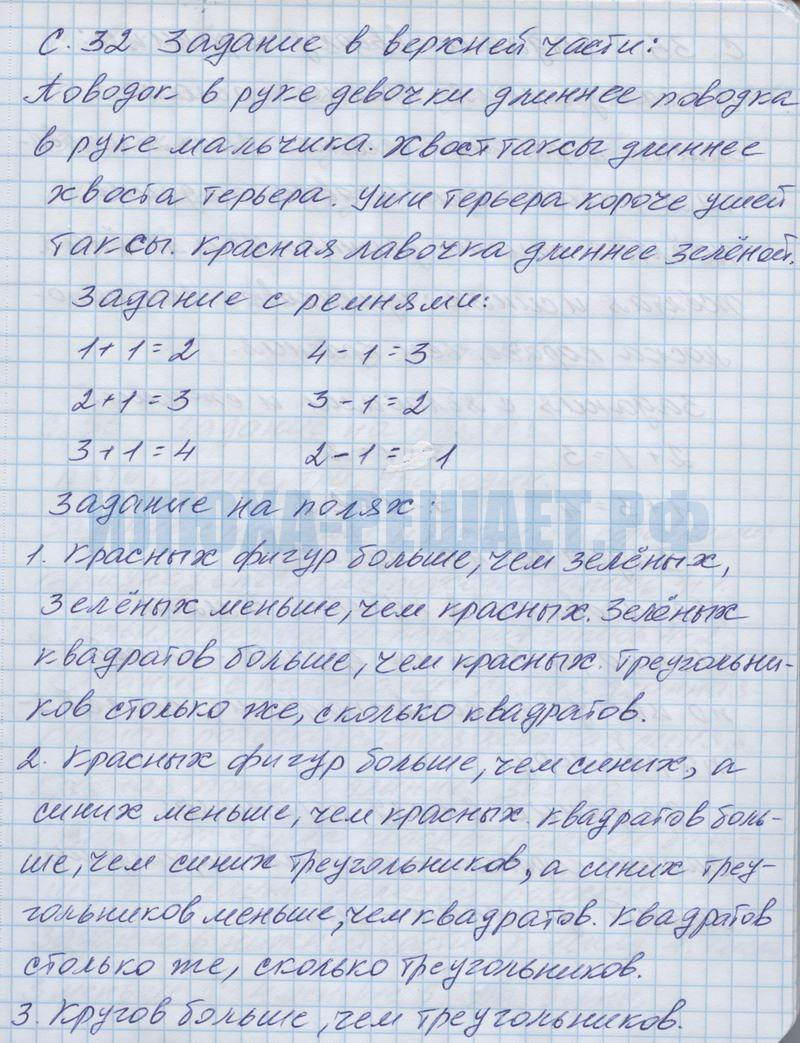 С. 32 Задание в верхней части:
Поводок в руке девочки длиннее поводка
в руке мальчика. Хвост таксы длиннее
хвоста терьера. Уши терьера короче ушей
таксы. Красная лавочка длиннее зелёной.
Задание с ремнями:
1+1=2 4-1=3
2+1=3 3-1=2
3+1=4 2-1= 1
Задание на полях:
ИЛЮХА-РЕШАЕТ.РФ
1. Красных фигур больше, чем зелёных,
зелёных меньше, чем красных. Зелёных
квадратов больше, чем красных. Треугольни-
ков столько же, сколько квадратов.
2. Красных фигур больше, чем синих, а
синих меньше, чем красных. Квадратов боль-
ше, чем синих треугольников, а синих треу-
гольников меньше, чем квадратов. Квадратов
столько же, сколько треугольников.
3. Кругов больше, чем треугольников.